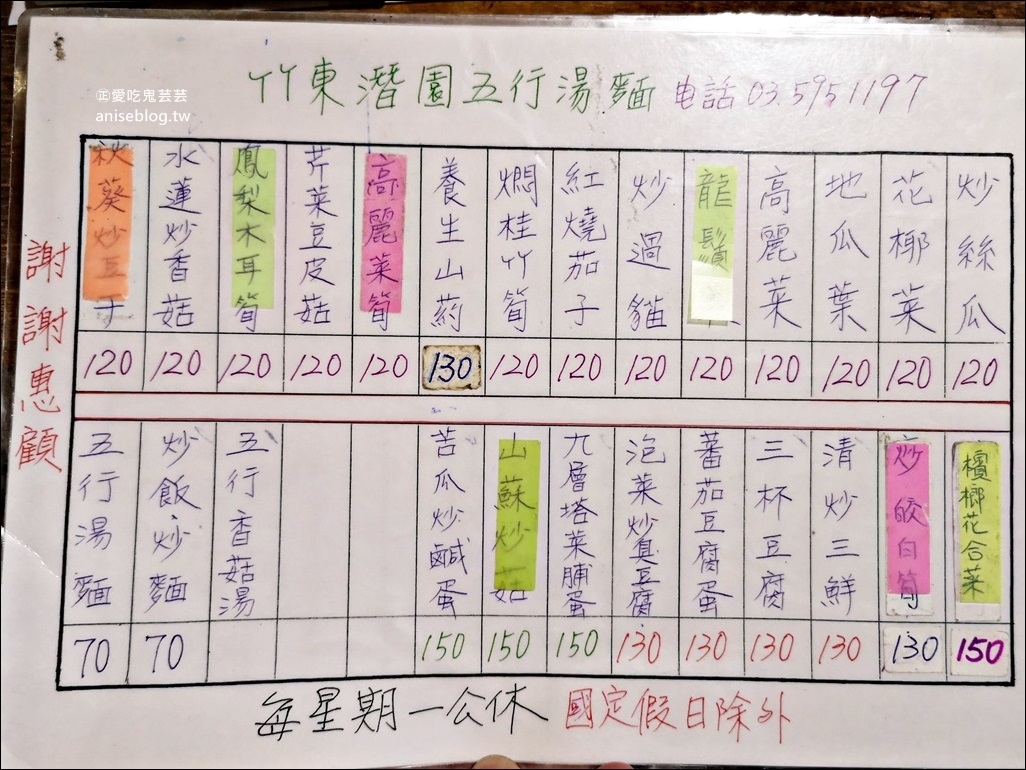 竹東潛園五行湯麵 电話 03.5951197
正愛吃鬼芸芸
aniseblog.tw
炒絲瓜 120
花椰菜 120
地瓜葉 120
高麗菜 120
龍鬚 120
炒過貓 120
紅燒茄子 120
燜桂竹筍 120
養生山葯 130
高麗菜筍 120
芹菜豆皮菇 120
鳳梨木耳筍 120
水蓮炒香菇 120
秋葵炒豆干 120
檳榔花合菜 150
炒皎白筍 130
清炒三鮮 130
三杯豆腐 130
蕃茄豆腐蛋 130
泡菜炒臭豆腐 130
九層塔菜脯蛋 150
山蘇炒菇 150
苦瓜炒鹹蛋 150
五行香菇湯
炒飯、炒麵 70
五行湯麵 70
謝謝惠顧
每星期一公休 國定假日除外